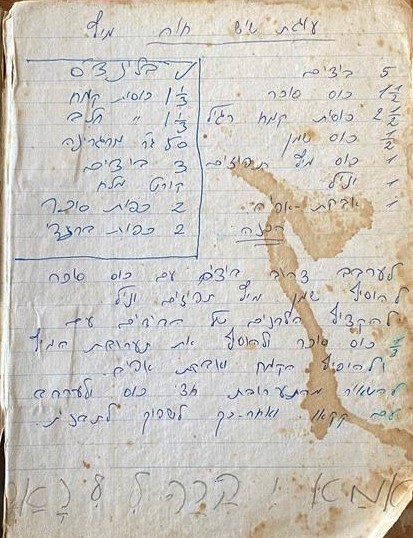 עוגת שיש חוה מיץ
5 ביצים
1 1/2 כוס סוכר
2 1/2 כוסות קמח רגיל
1/2 כוס שמן
1 כוס מיץ תפוזים
1 וניל
1 אבקת-אפיה
הכנה
בלינצ'ס
1 1/3 כוסות קמח
1 1/3 " חלב
50 גר' מרגרינה
3 ביצים
קורט מלח
2 כפות סוכר
2 כפות ברנדי
לערבב צהוב ביצים עם כוס סוכר
להוסיף שמן מיץ תפוזים וניל.
להקציף הלבנים של הביצים עם
1/2 כוס סוכר ולהוסיף את תערובת המיץ
להוסיף הקמח ואבקת אפיה.
להשאיר מהתערובת חצי כוס ולערבב
עם קקאו ואחר-כך לשפוך לתבנית.
אמא